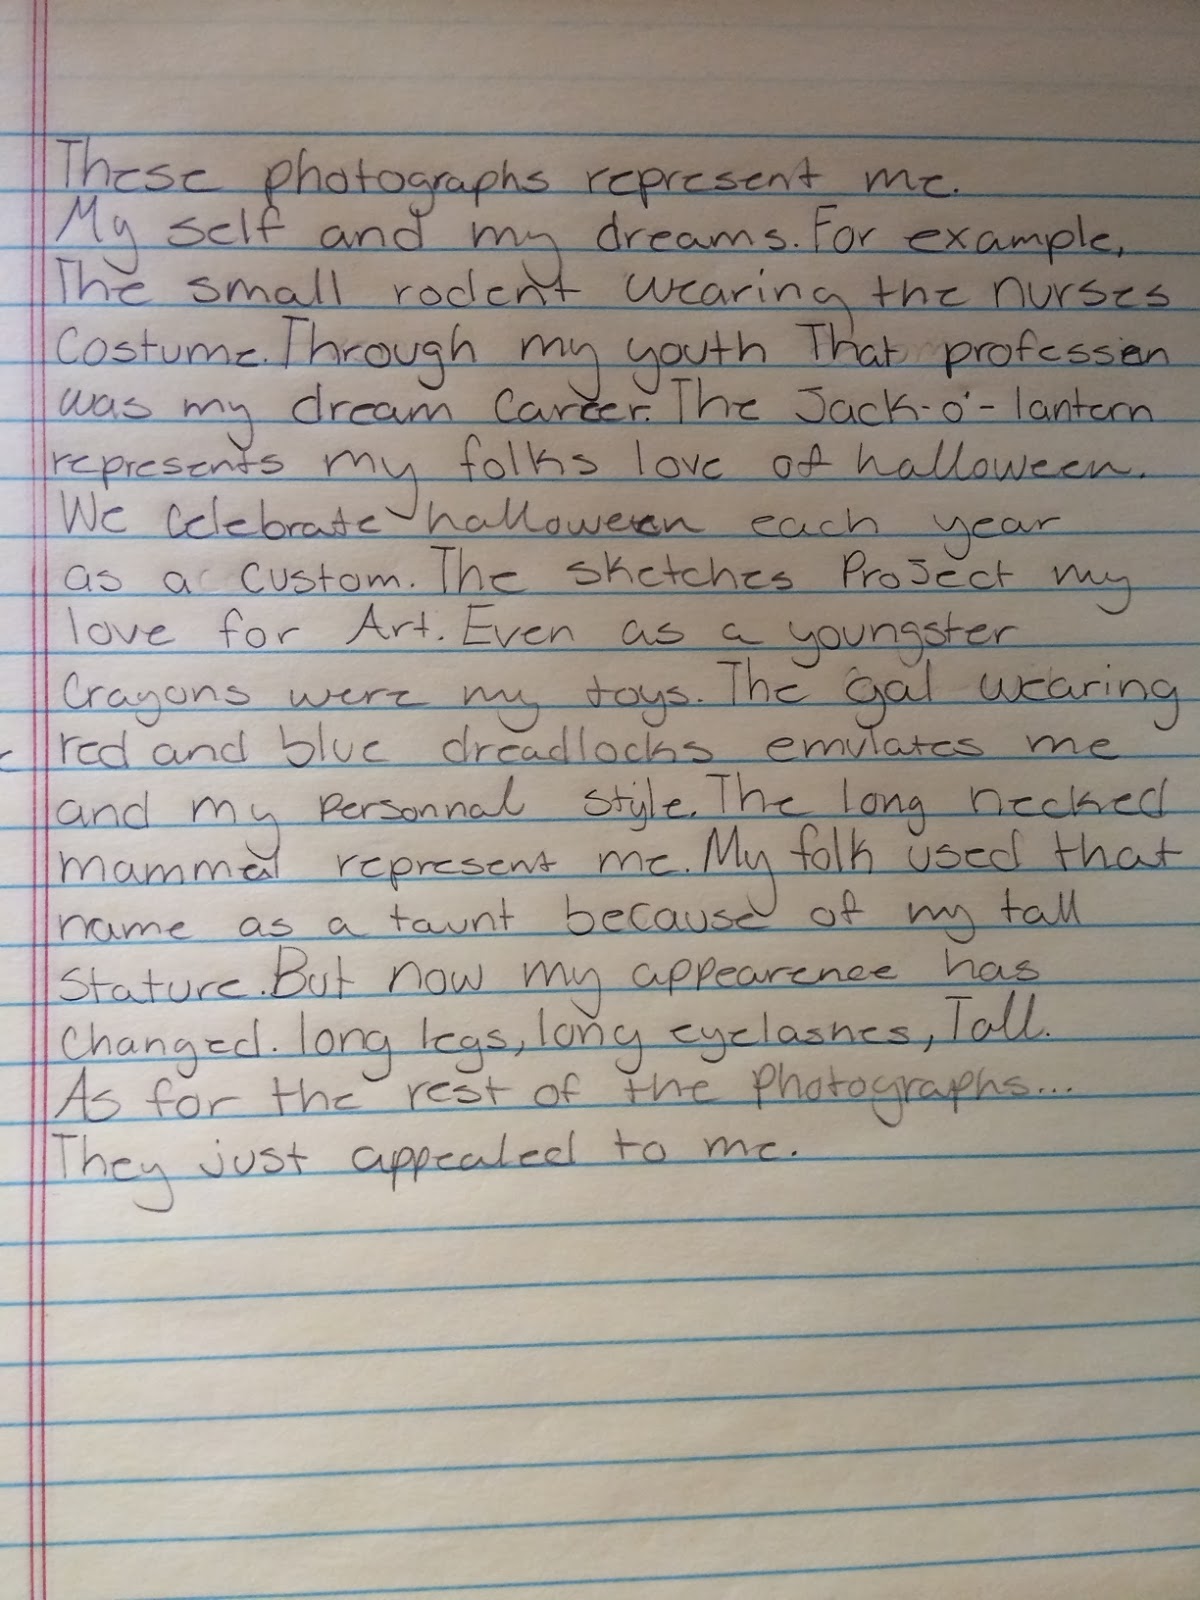 These photographs represent me.
My self and my dreams. For example,
The small rodent wearing the nurses
Costume. Through my youth That profession
was my dream Career. The Jack-o'-lantern
represents my folks love of halloween.
We Celebrate halloween each year
as a Custom. The sketches ProJect my
love for Art. Even as a youngster
Crayons were my toys. The gal wearing
red and blue dreadlocks emulates me
and my Personnal style. The long necked
mammal represent me. My folk used that
name as a taunt because of my tall
Stature. But now my appearence has
Changed. long legs, long eyelashes, Tall.
As for the rest of the Photographs...
They just appealed to me.